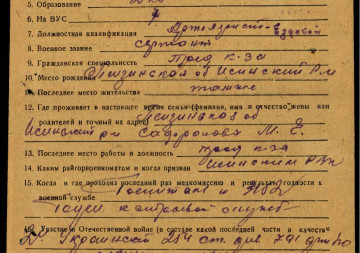 5. Образование
6. На ВУС
7. Должностная квалификация Артиллерист-Ездовой
8. Военное звание сержант
9. Гражданская специальность Пред к-за
10. Место рождения Пензинская об Исинский Р-н
11. Последнее место жительства также
12. Где проживает в настоящее время семья (фамилия, имя и отчество жены или
родителей и точный их адрес) Пензинская об
Исинский р-н М. Е.
13. Последнее место работы и должность пред к-за
14. Каким райгорвоенкоматом и когда призван Исинским РВК
15. Когда и где проходил последний раз медкомиссию и результат годности к
военной службе
Годен к строевой службе
16. Участие в Отечественной войне (в составе какой последней части и в качестве
Украинский 254 стр. див 791